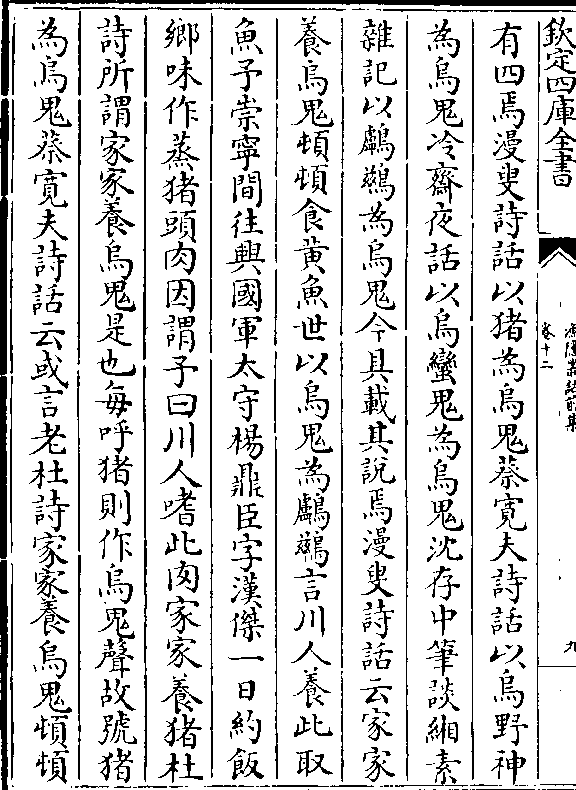 欽定四庫全書
漁隱叢話前集
卷十二
九
有四焉漫叟詩話以猪為烏鬼蔡寛夫詩話以烏野神
為烏鬼冷齋夜話以烏蠻鬼為烏鬼沈存中筆談緗素
雜記以鸕鷀為烏鬼今具載其說焉漫叟詩話云家家
養烏鬼頓頓食黄魚世以烏鬼為鸕鷀言川人養此取
魚予崇寧間往興國軍太守楊鼎臣字漢傑一日約飯
鄉味作蒸猪頭肉因謂予曰川人嗜此肉家家養猪杜
詩所謂家家養烏鬼是也每呼猪則作烏鬼聲故號猪
為烏鬼蔡寛夫詩話云或言老杜詩家家養烏鬼頓頓